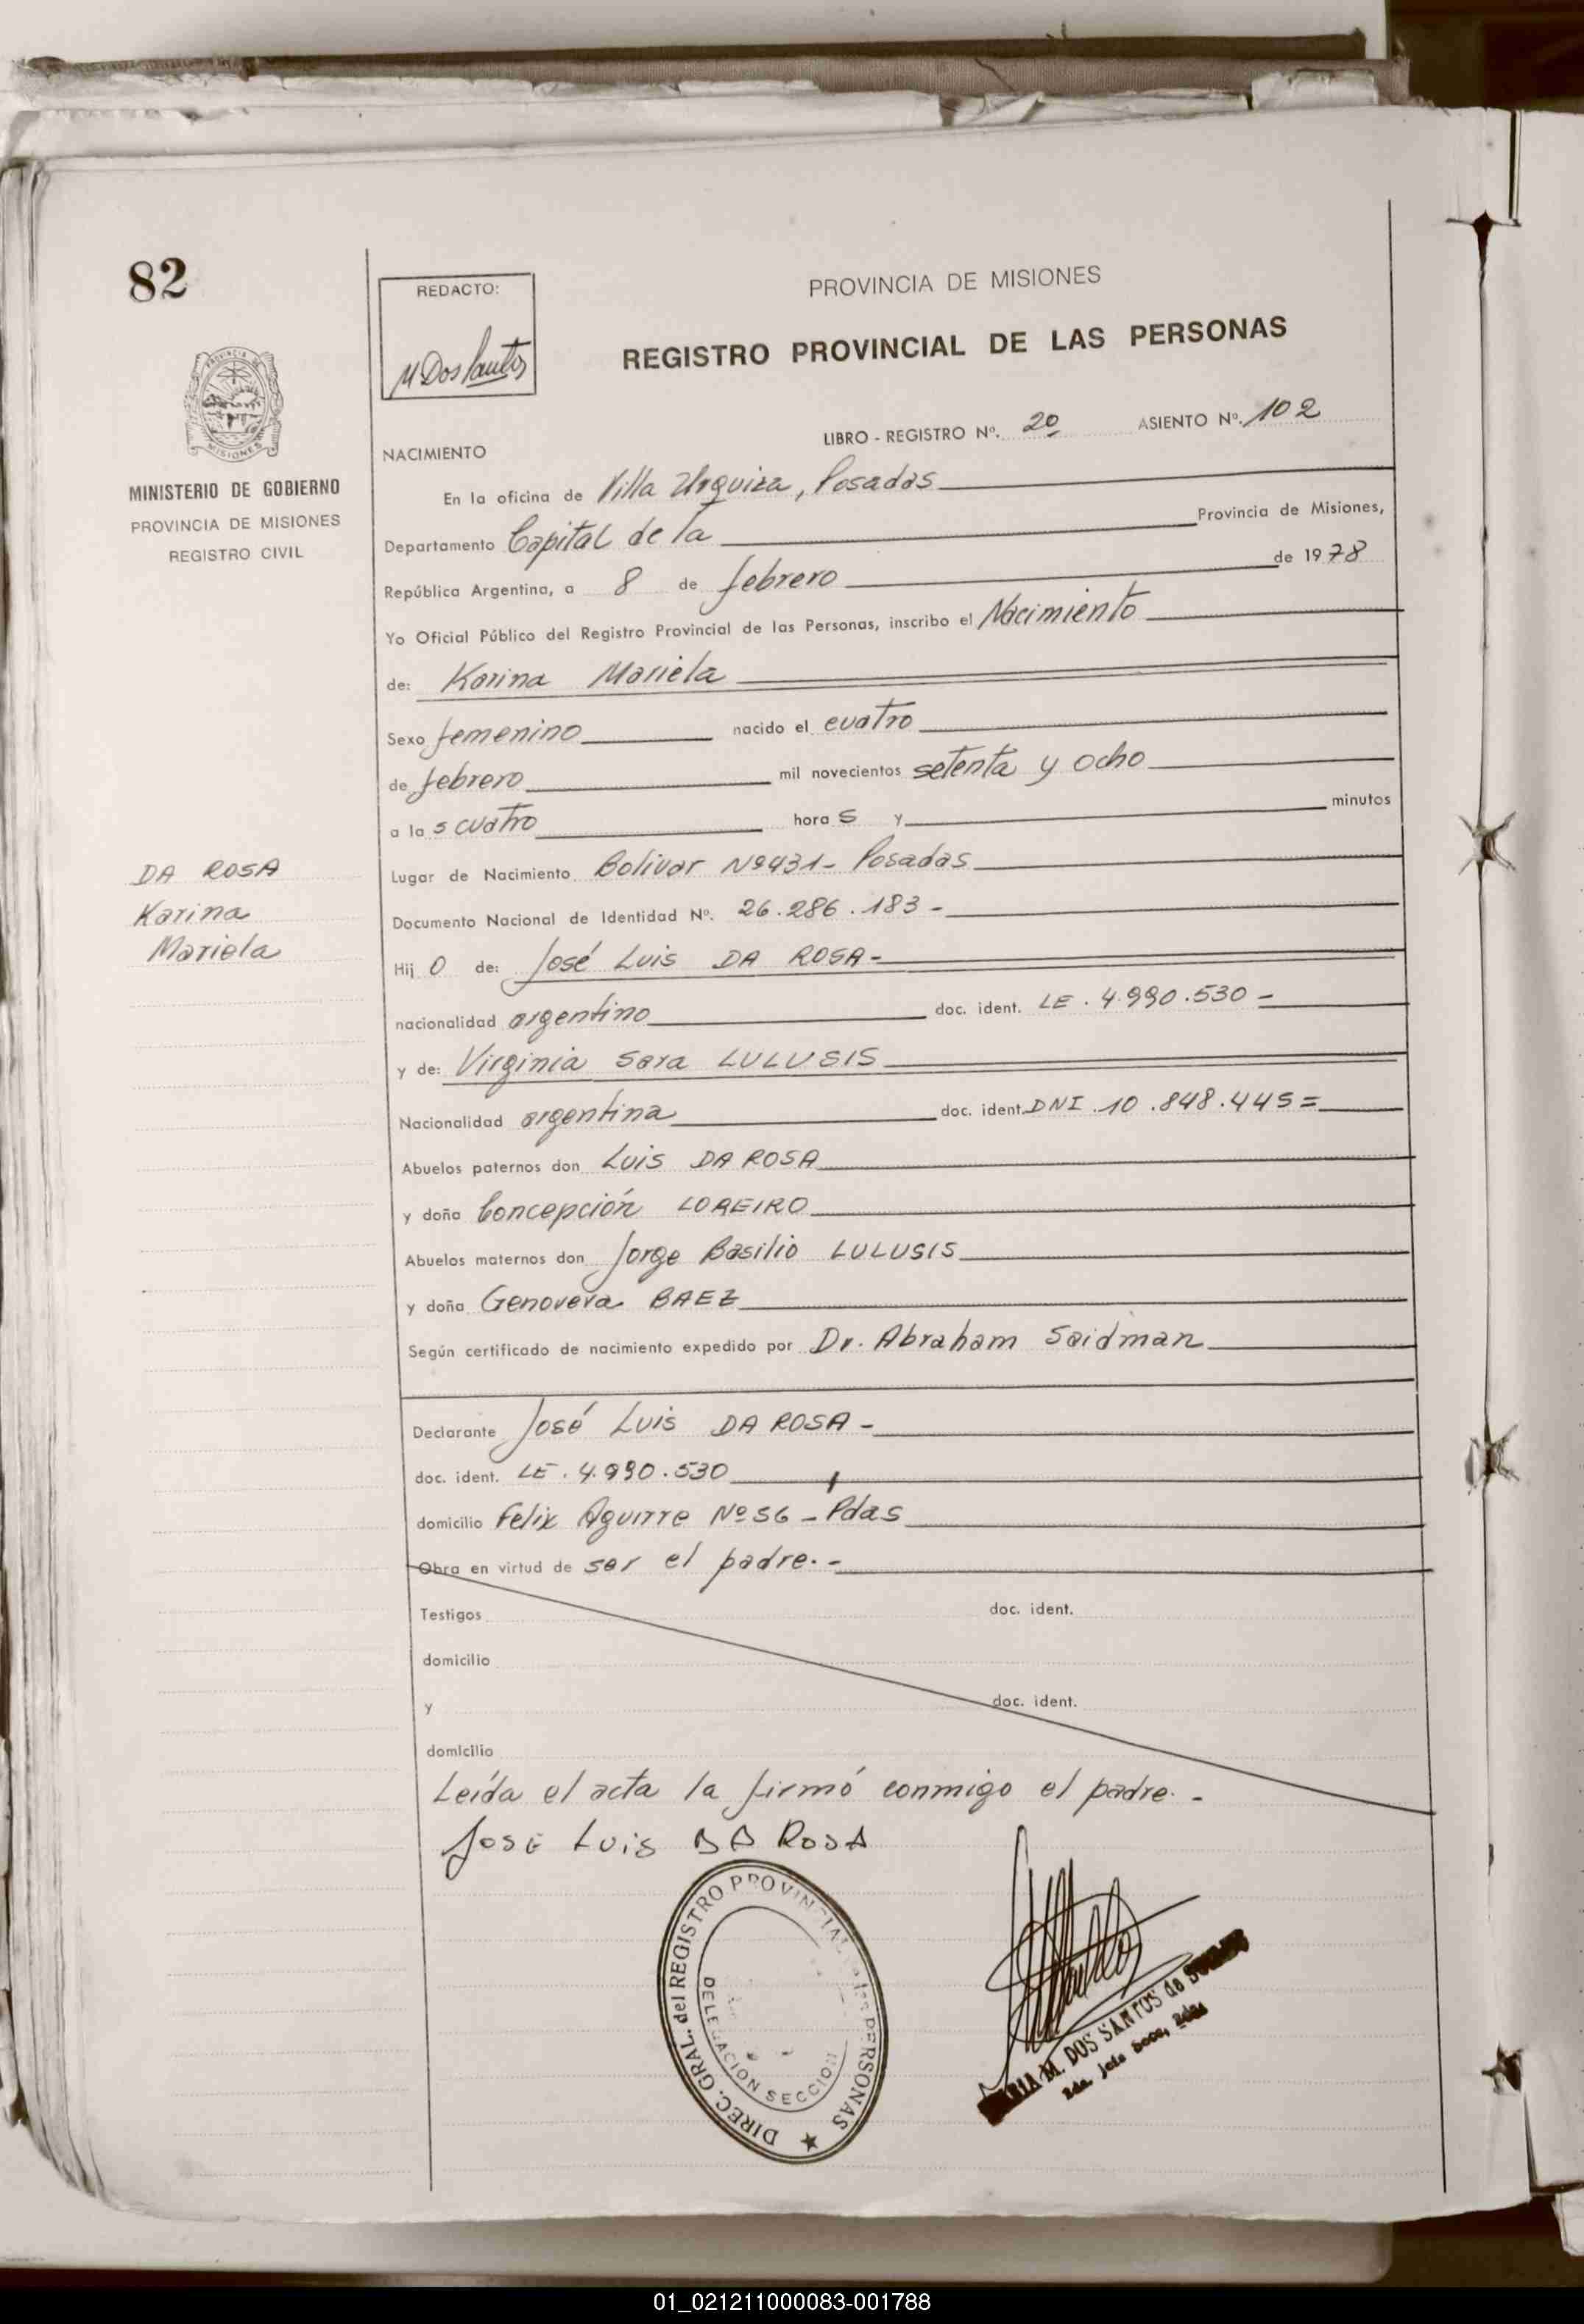 82
PROVINCIA DE MISIONES
MINISTERIO DE GOBIERNO
PROVINCIA DE MISIONES
REGISTRO CIVIL
DA ROSA
Karina
Mariela
REDACTO:
M Dos Santos
PROVINCIA DE MISIONES
REGISTRO PROVINCIAL DE LAS PERSONAS
LIBRO - REGISTRO Nº. 2º ASIENTO Nº. 102
NACIMIENTO
En la oficina de Villa Urquiza, Posadas
Departamento Capital de la Provincia de Misiones,
República Argentina, a 8 de febrero de 1978
Yo Oficial Público del Registro Provincial de las Personas, inscribo el Nacimiento
de: Karina Mariela
Sexo femenino nacido el cuatro
de febrero mil novecientos setenta y ocho
a la s cuatro hora s y minutos
Lugar de Nacimiento Bolivar Nº431- Posadas
Documento Nacional de Identidad Nº. 26.286.183 -
Hij o de: José Luis DA ROSA-
nacionalidad argentino doc. ident. LE. 4.990.530 -
y de: Virginia Sara LULUSIS
Nacionalidad argentina doc. ident. DNI. 10.848.445=
Abuelos paternos don Luis DA ROSA
y doña Concepción LOREIRO
Abuelos maternos don Jorge Basilio LULUSIS
y doña Genoveva BAEZ
Según certificado de nacimiento expedido por Dr. Abraham Saidman
Declarante José Luis DA ROSA -
doc. ident. LE. 4.990.530
domicilio Felix Aguirre Nº56 - Pdas
Obra en virtud de ser el padre. -
Testigos doc. ident.
domicilio
y doc. ident.
domicilio
Leída el acta la firmó conmigo el padre. -
José Luis DA ROSA
DIREC. GRAL. del REGISTRO PROVINCIAL de las PERSONAS
DELEGACION SECCION
M. DOS SANTOS de
01_021211000083-001788